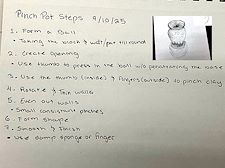 Pinch Pot Steps 9/10/25
1. Form a Ball
• Taking the block & wet/pat till round
2. Create Opening
• Use thumb to press in the ball w/o penetrating the base
3. Use the thumb (inside) & fingers (outside) to pinch clay
4. Rotate & Thin walls
5. Even out walls
• Small consistent pinches
6. Form Shape
7. Smooth & Finish
• Use damp sponge or finger